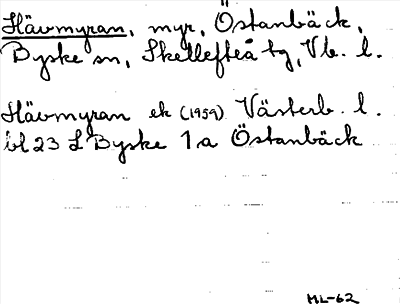 Hävmyran, myr, Östanbäck,
Byske sn, Skellefteå tg, Vb. l.
Hävmyran ek (1959) Västerb. l.
bl 23 L Byske 1a Östanbäck
ML-62